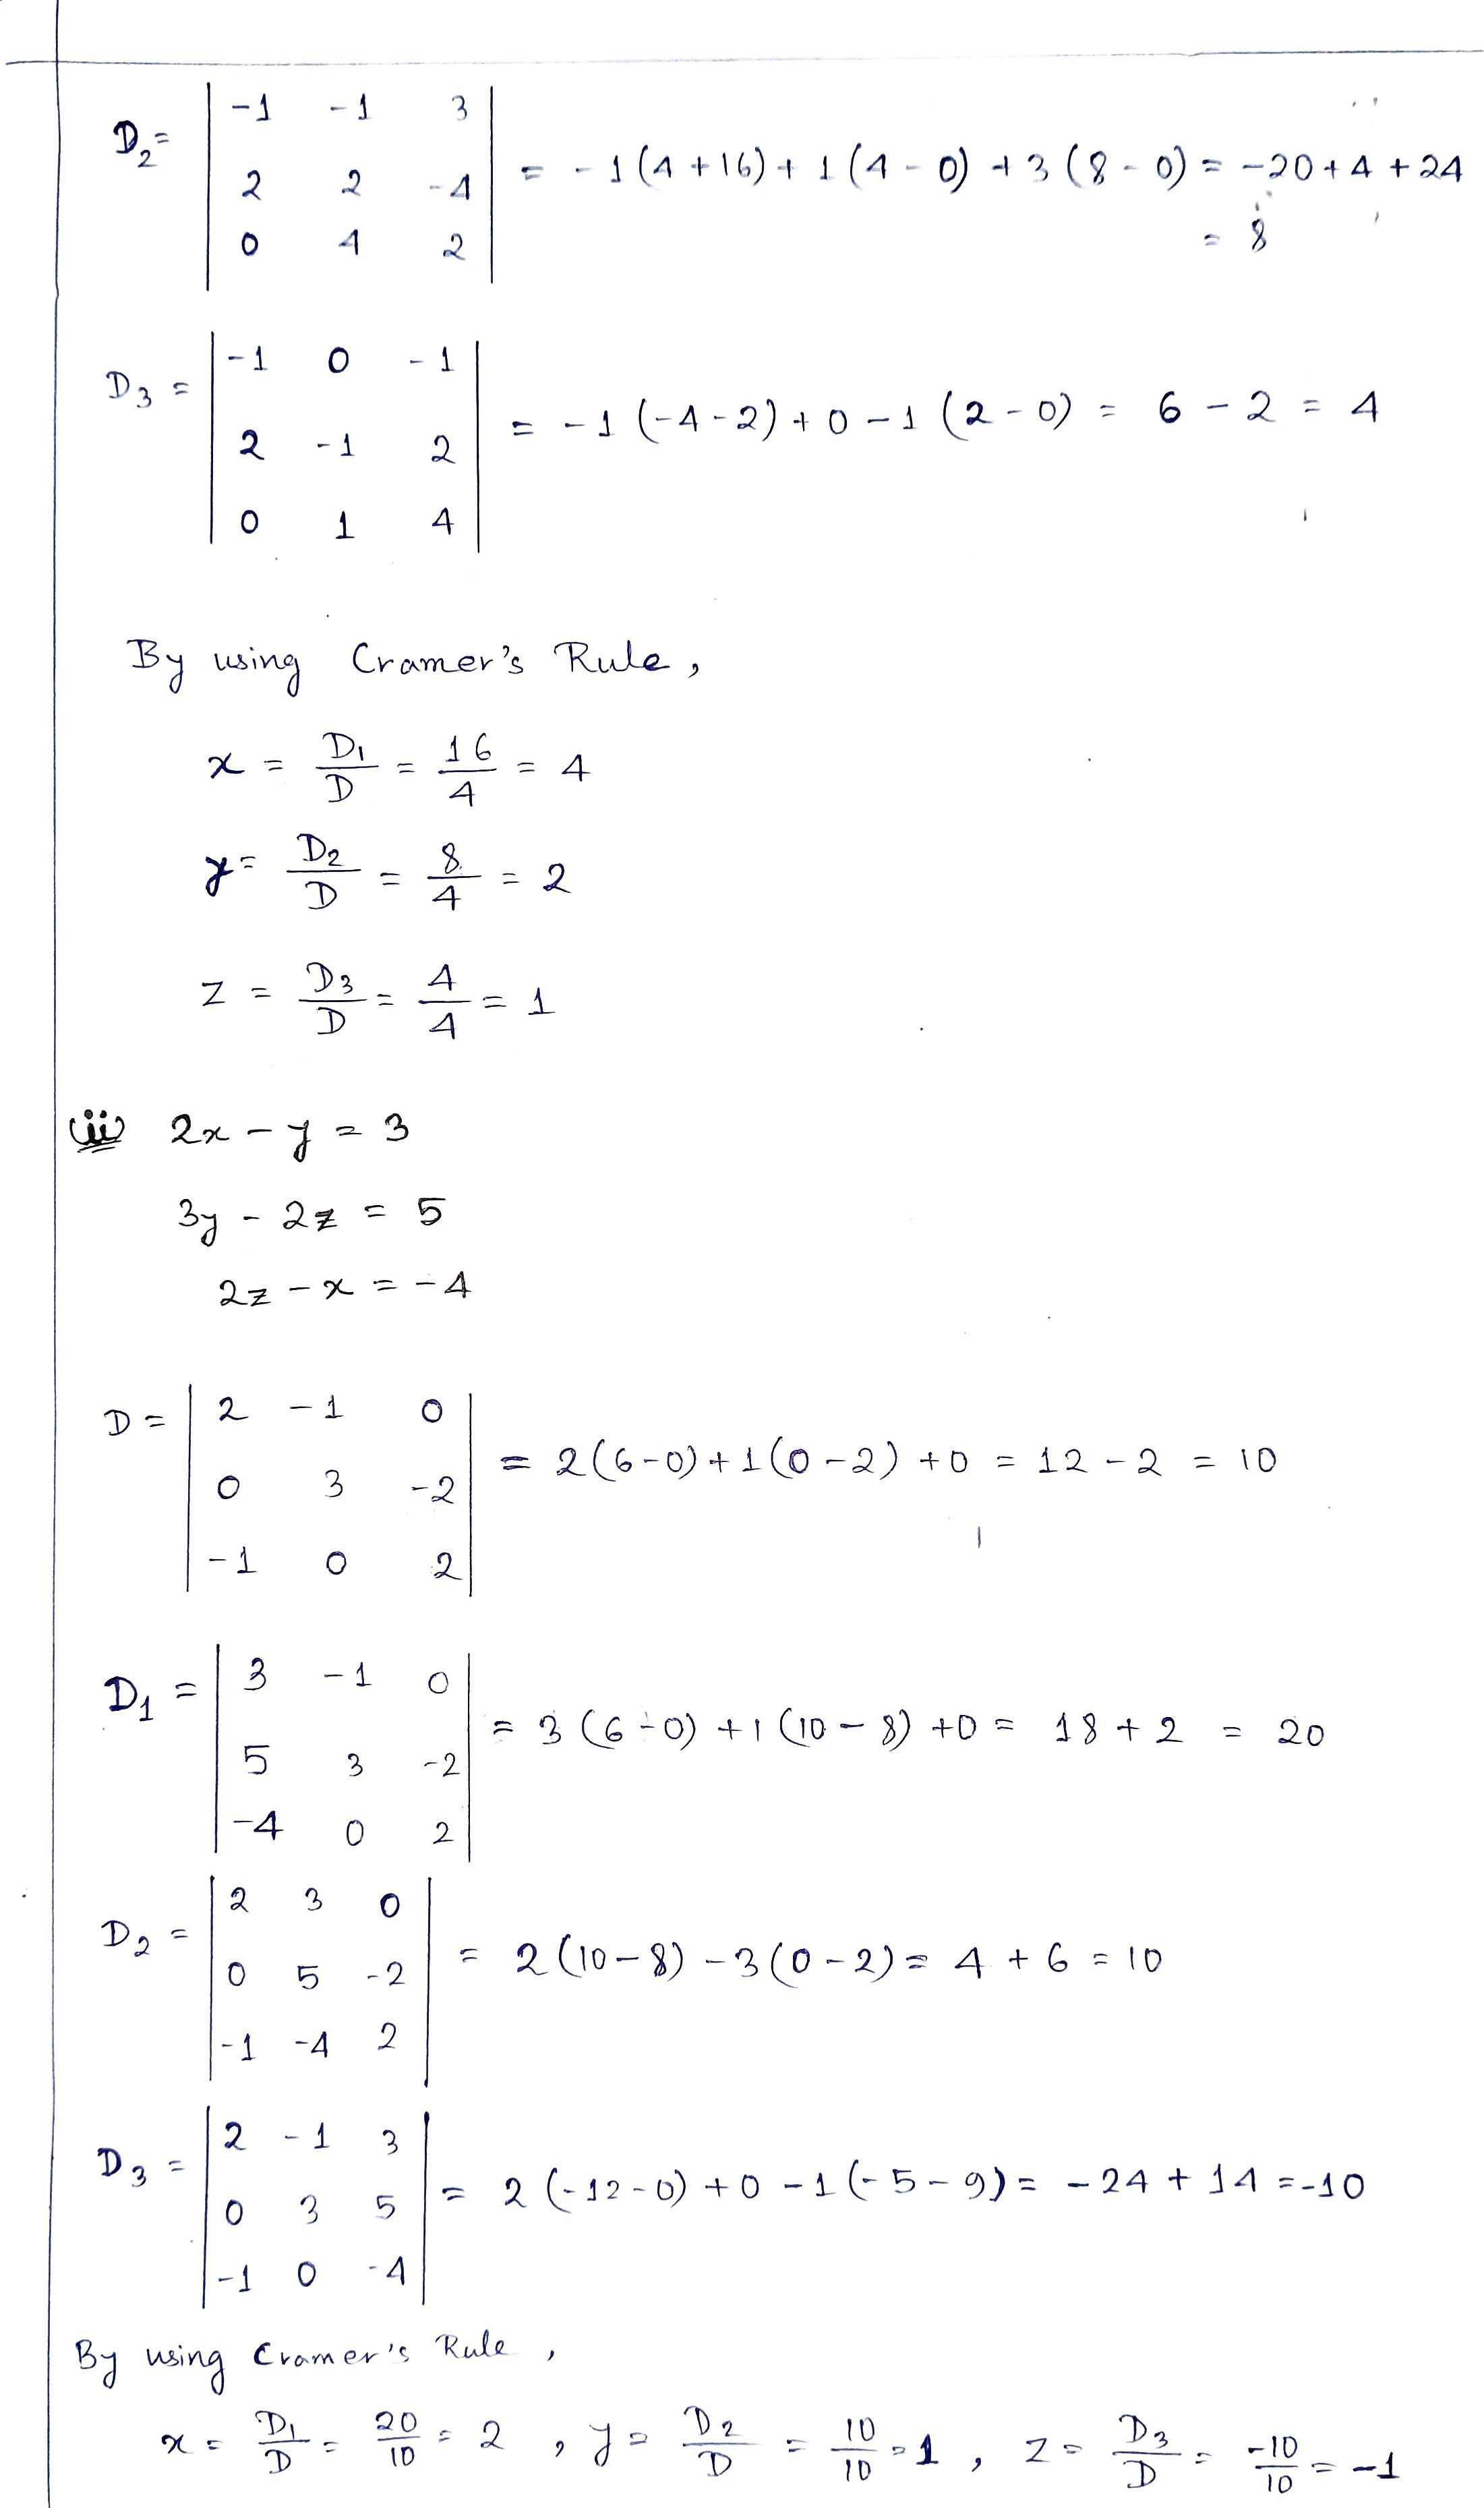 D₂ = | -1 -1 3 |
| 2 2 -4 | = -1(4+16)+1(4-0)+3(8-0) = -20+4+24
| 0 4 2 | = 8
D₃ = | -1 0 -1 |
| 2 -1 2 | = -1(-4-2)+0-1(2-0) = 6-2 = 4
| 0 1 4 |
By using Cramer's Rule,
x = D₁/D = 16/4 = 4
y = D₂/D = 8/4 = 2
z = D₃/D = 4/4 = 1
(iii) 2x - y = 3
3y - 2z = 5
2z - x = -4
D = | 2 -1 0 |
| 0 3 -2 | = 2(6-0)+1(0-2)+0 = 12-2 = 10
| -1 0 2 |
D₁ = | 3 -1 0 |
| 5 3 -2 | = 3(6-0)+1(10-8)+0 = 18+2 = 20
| -4 0 2 |
D₂ = | 2 3 0 |
| 0 5 -2 | = 2(10-8)-3(0-2) = 4+6 = 10
| -1 -4 2 |
D₃ = | 2 -1 3 |
| 0 3 5 | = 2(-12-0)+0-1(-5-9) = -24+14 = -10
| -1 0 -4 |
By using Cramer's Rule,
x = D₁/D = 20/10 = 2, y = D₂/D = 10/10 = 1, z = D₃/D = -10/10 = -1